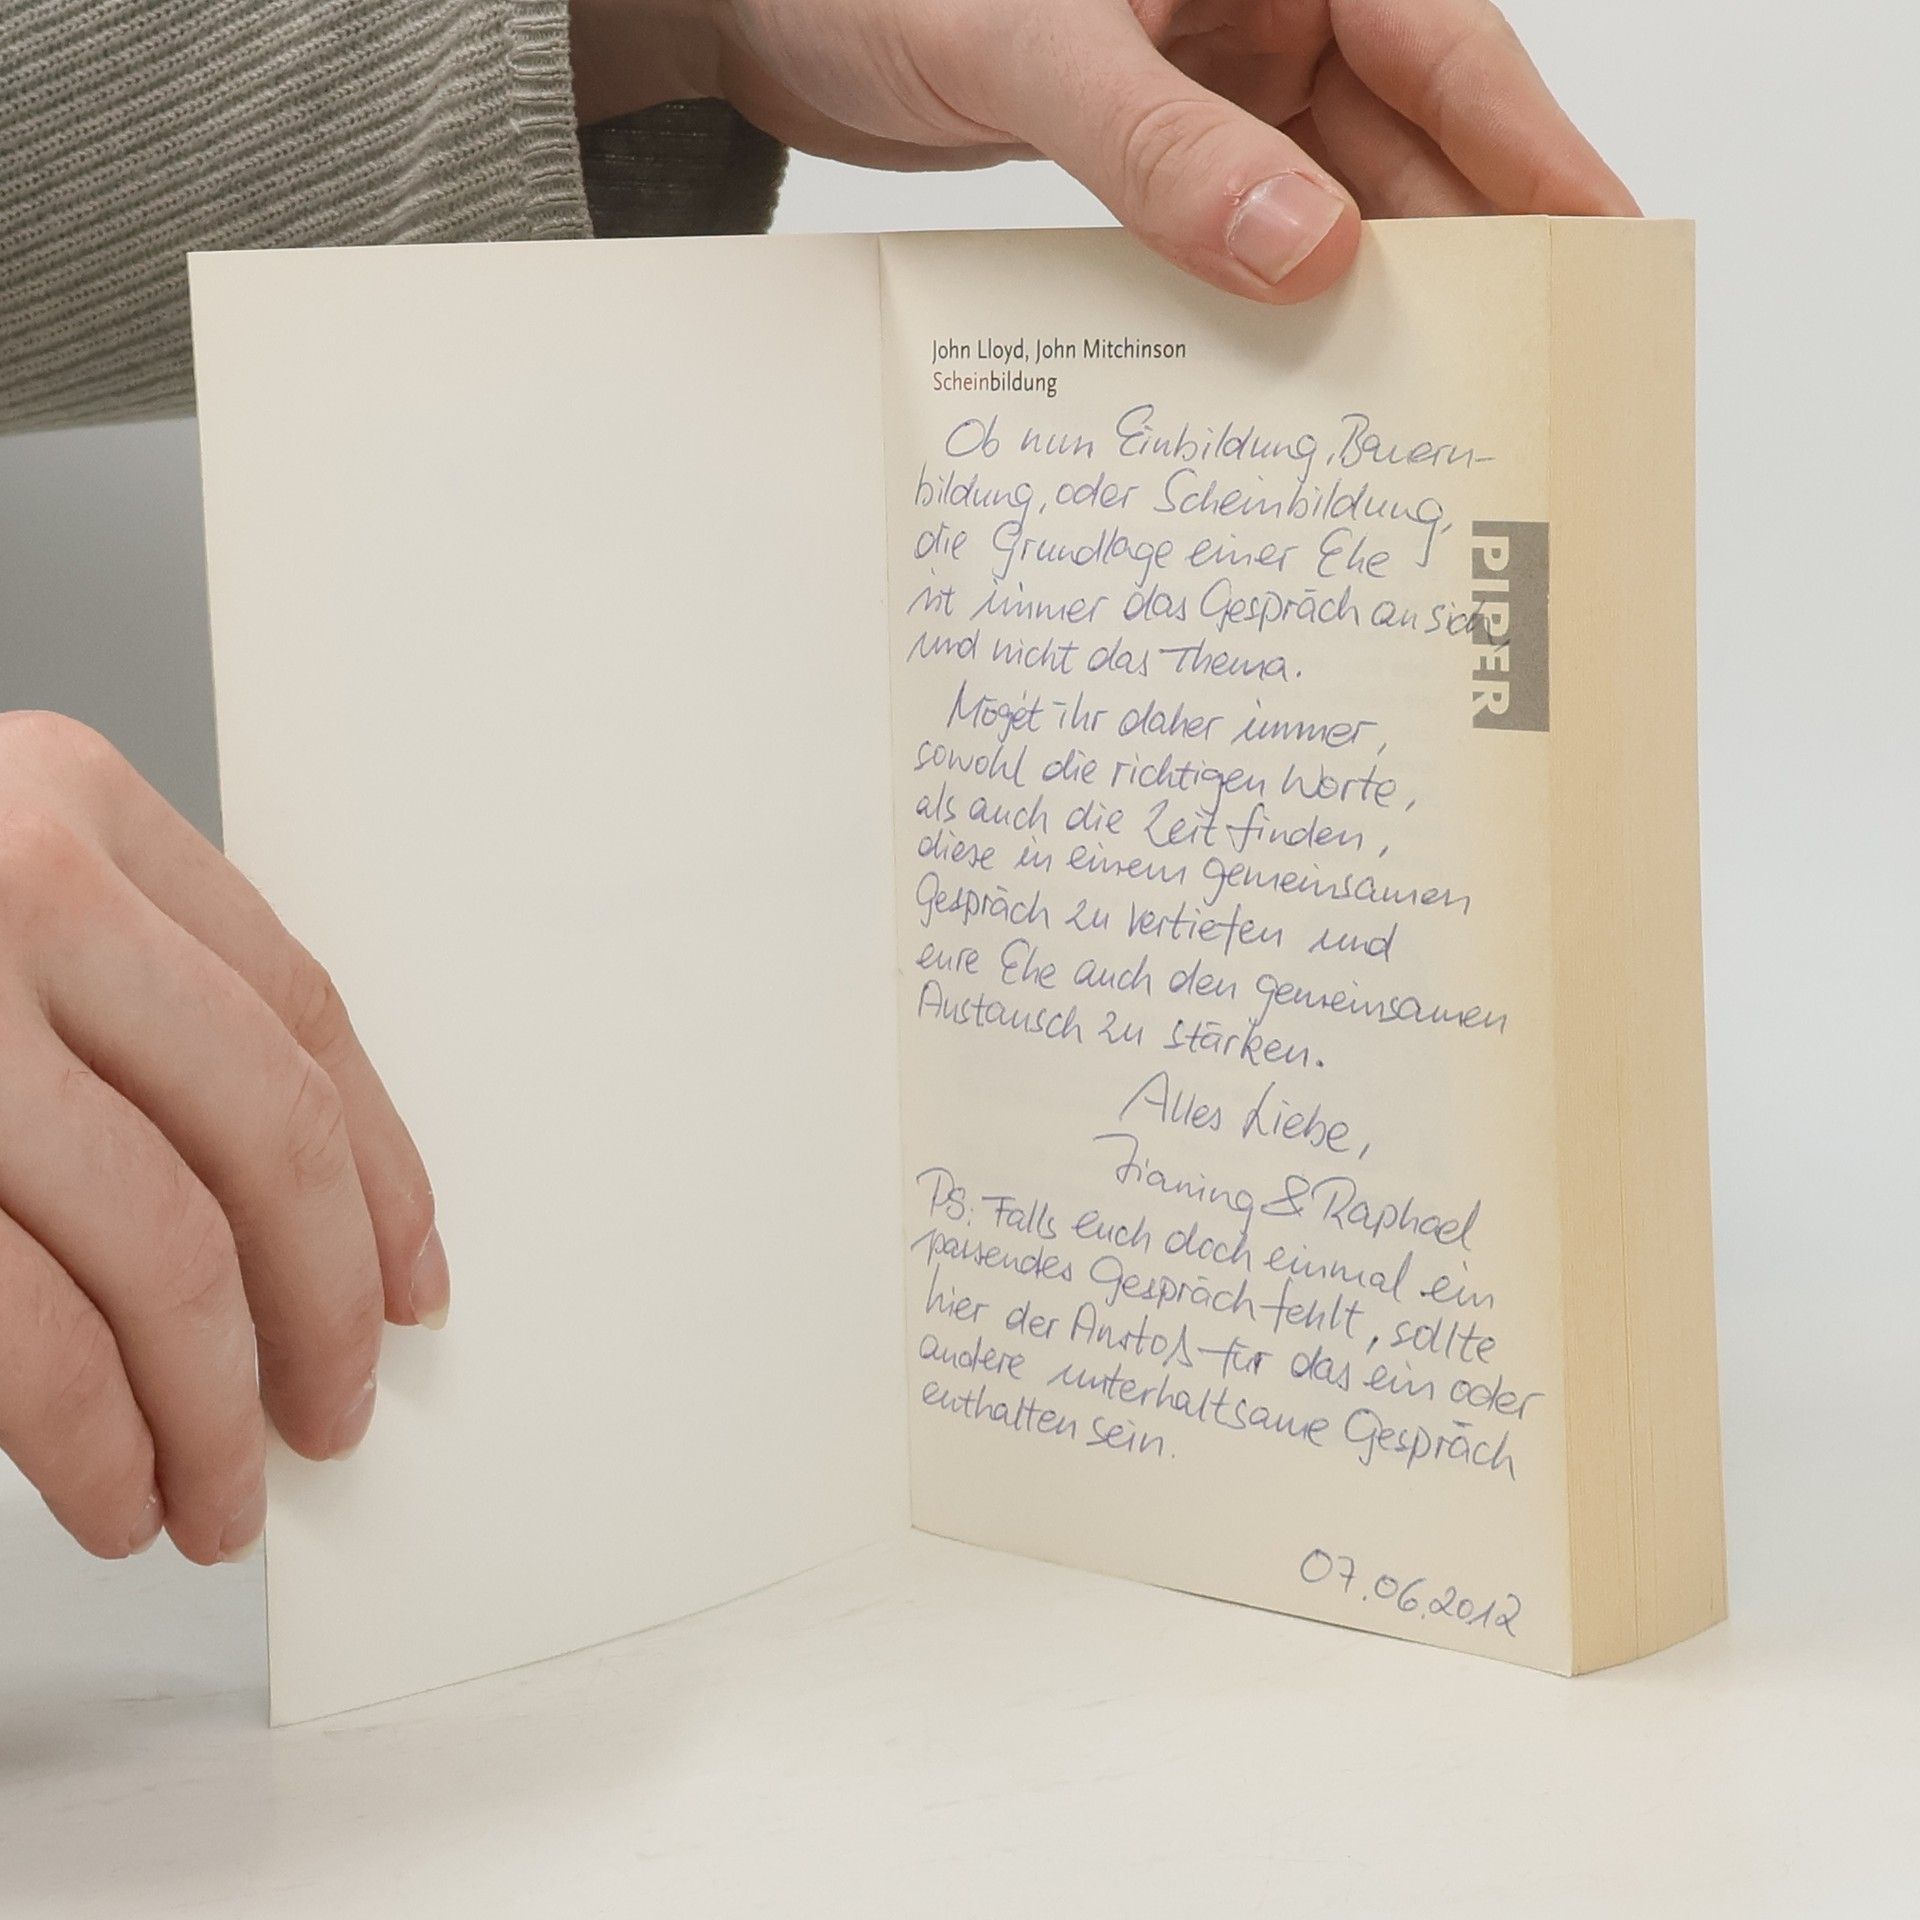 John Lloyd, John Mitchinson
Scheinbildung
Ob nun Einbildung, Bauern-
bildung, oder Scheinbildung,
die Grundlage einer Ehe
ist immer das Gespräch an sich
und nicht das Thema.
Möget ihr daher immer,
sowohl die richtigen Worte,
als auch die Zeit finden,
diese in einem gemeinsamen
Gespräch zu vertiefen und
eure Ehe auch den gemeinsamen
Austausch zu stärken.
Alles Liebe,
Jianing & Raphael
PS: Falls euch doch einmal ein
passendes Gespräch fehlt, sollte
hier der Anstoß für das ein oder
andere unterhaltsame Gespräch
enthalten sein.
07.06.2012
PIPER